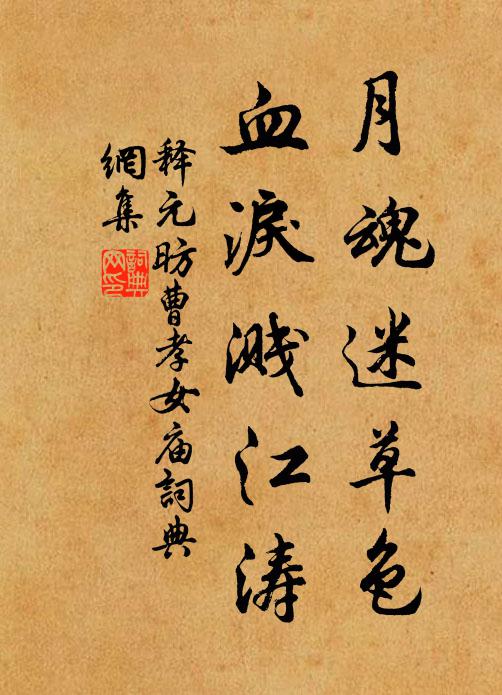 月魂迷草色
血淚溅江涛
释元昉曹孝女庙詞典
網集
詞典网印